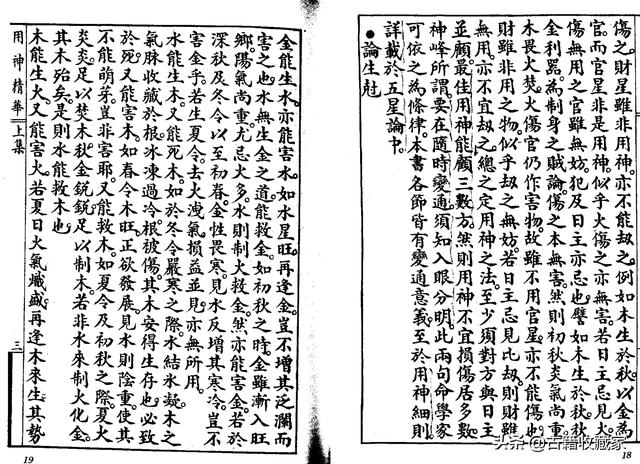 傷之財星雖非用神不能劫之例如木生於秋以金為
官而官星非是用神似乎火傷之亦無害若日主忌見火
傷無用之官雖無妨犯及日主亦忌也譬如木生於秋秋
金利器為制身之賊論傷之本無害然則初秋炎氣尚重
木畏火焚火傷官仍作害物故雖不用官星亦不能傷也
財雖非用之物似乎劫之無妨若日主忌見比劫則財雖
無用亦不宜劫之總之定用神之法至少須對方與日主
並顧最佳用神能顧三數方然則用神不宜損傷居多數
神峰所謂要在隨時變通須知入眼分明此兩句命學家
可依之為條律本書各節皆有變通意義至於用神細則
詳載於五星論中
●論生尅
18
金能生水亦能害水如水星旺再逢金豈不增其泛瀾而
害之也水無生金之道能救金如初秋之時金雖漸入旺
鄉陽氣尚重尤忌火多水則制火救金然亦能害金若於
深秋及冬令以至初春金性畏寒見水反增其寒冷豈不
害金乎若生夏令去火洩氣損益並見亦無所用
水能生木又能死木如於冬令嚴寒之際水結氷凝木之
氣脉收藏於根冰凍過冷根被傷其木安得生存也必致
於死又能害木如春令木旺正欲發展見水則陰重使其
不能萌芽豈非害耶又能救木如夏令及初秋之際夏火
炎炎足以焚木秋金銳銳足以制木若非水來制火化金
其木殆矣是則水能救木也
木能生火又能害火若夏日火氣熾盛再逢木來生其勢
用神精華 上集
三
19
头条 @古籍收藏家